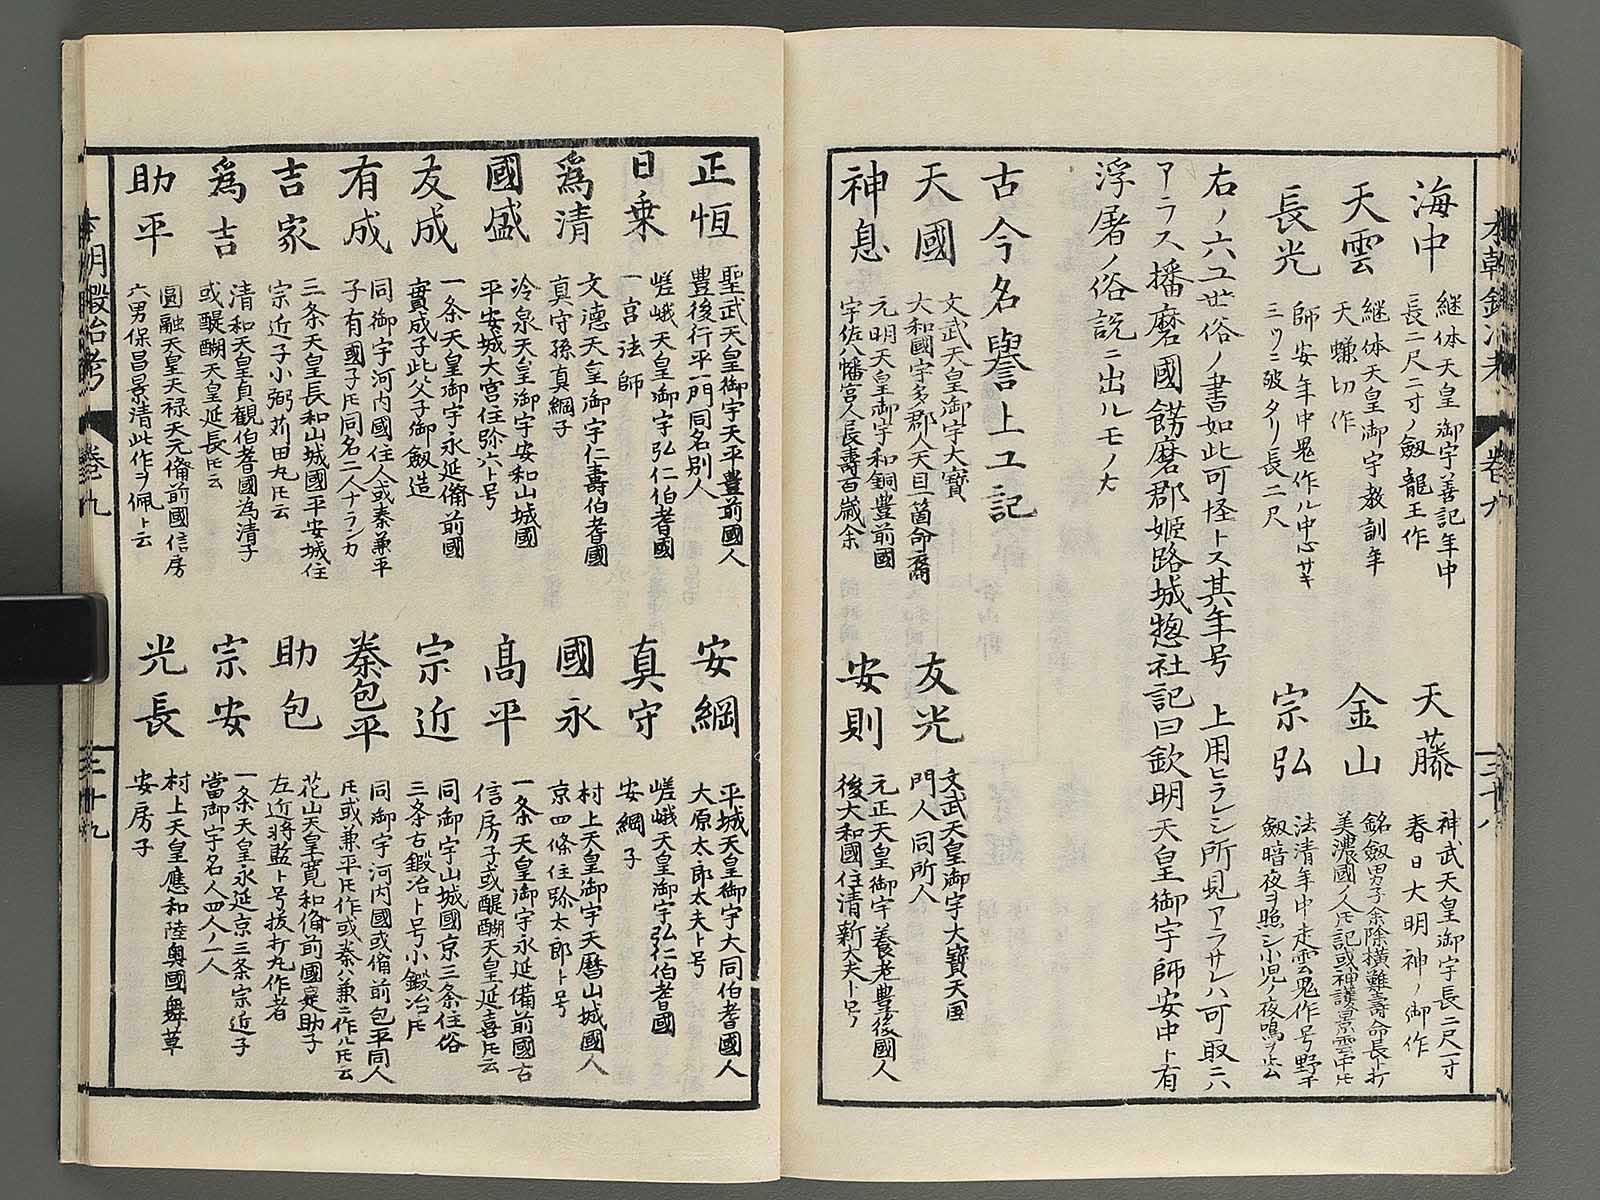 海中
継体天皇御宇善記年中
長二尺二寸ノ劔龍王作
天藤
神武天皇御宇長二尺一寸
春日大明神ノ御作
天雲
継体天皇御宇教訓年
天蠅切作
金山
銘劔男子余除横難壽命長ト打
美濃國人氏記或神護景雲中氏
長光
師安年中鬼作ル中心サキ
三ツニ破タリ長二尺
宗弘
法清年中走雲鬼作号野干
劔暗夜ヲ照シ小児ノ夜鳴ヲ止ム
右ノ六工世俗ノ書如此可怪トス其年号 上用ヒラシ所見アラサレハ可取ニ
アラス播磨國餝磨郡姫路城惣社記曰欽明天皇御宇師安中ト有
浮屠ノ俗説ニ出ルモノ大
古今名譽上工記
天國
文武天皇御宇大寶
大和國宇多郡人天目一箇命裔
友光
文武天皇御宇大寶天国
門人同所人
神息
元明天皇御宇和銅豊前國
宇佐八幡宮人長壽百歳余
安則
元正天皇御宇養老豊後國人
後大和國住清新大夫ト号ノ
本朝鍛冶考 巻九 三十八
正恒
聖武天皇御宇天平豊前國人
豊後行平一門同名別人
安綱
平城天皇御宇大同伯耆國人
大原太郎太夫ト号
日乗
嵯峨天皇御宇弘仁伯耆國
一宮法師
真守
嵯峨天皇御宇弘仁伯耆國
安綱子
爲清
文徳天皇御宇仁壽伯耆國
真守孫真綱子
國永
村上天皇御宇天暦山城國人
京四條住弥太郎ト号
國盛
冷泉天皇御宇安和山城國
平安城大宮住弥六ト号
高平
一条天皇御宇永延備前國古
信房子或醍醐天皇延喜氏云
友成
一条天皇御宇永延備前國
實成子此父子御劔造
宗近
同御宇山城國京三条住俗
三条古鍛冶ト号小鍛冶氏
有成
同御宇河内國住人或秦兼平
子有國子氏同名二人ナランカ
秦包平
同御宇河内國或備前包平同人
氏或兼平氏作或秦ハ兼ニ作ル氏云
吉家
三条天皇長和山城國平安城住
宗近子小弼苅田丸氏云
助包
花山天皇寛和備前國㝎助子
左近将監ト号抜打丸作者
爲吉
清和天皇貞観伯耆國為清子
或醍醐天皇延長氏云
宗安
一条天皇永延京三条宗近子
當御宇名人四人ノ一人
助平
圓融天皇天禄天元備前國信房
六男保昌景清此作ヲ佩ト云
光長
村上天皇應和陸奥國舞草
安房子
本朝鍛冶考 巻九 三十九